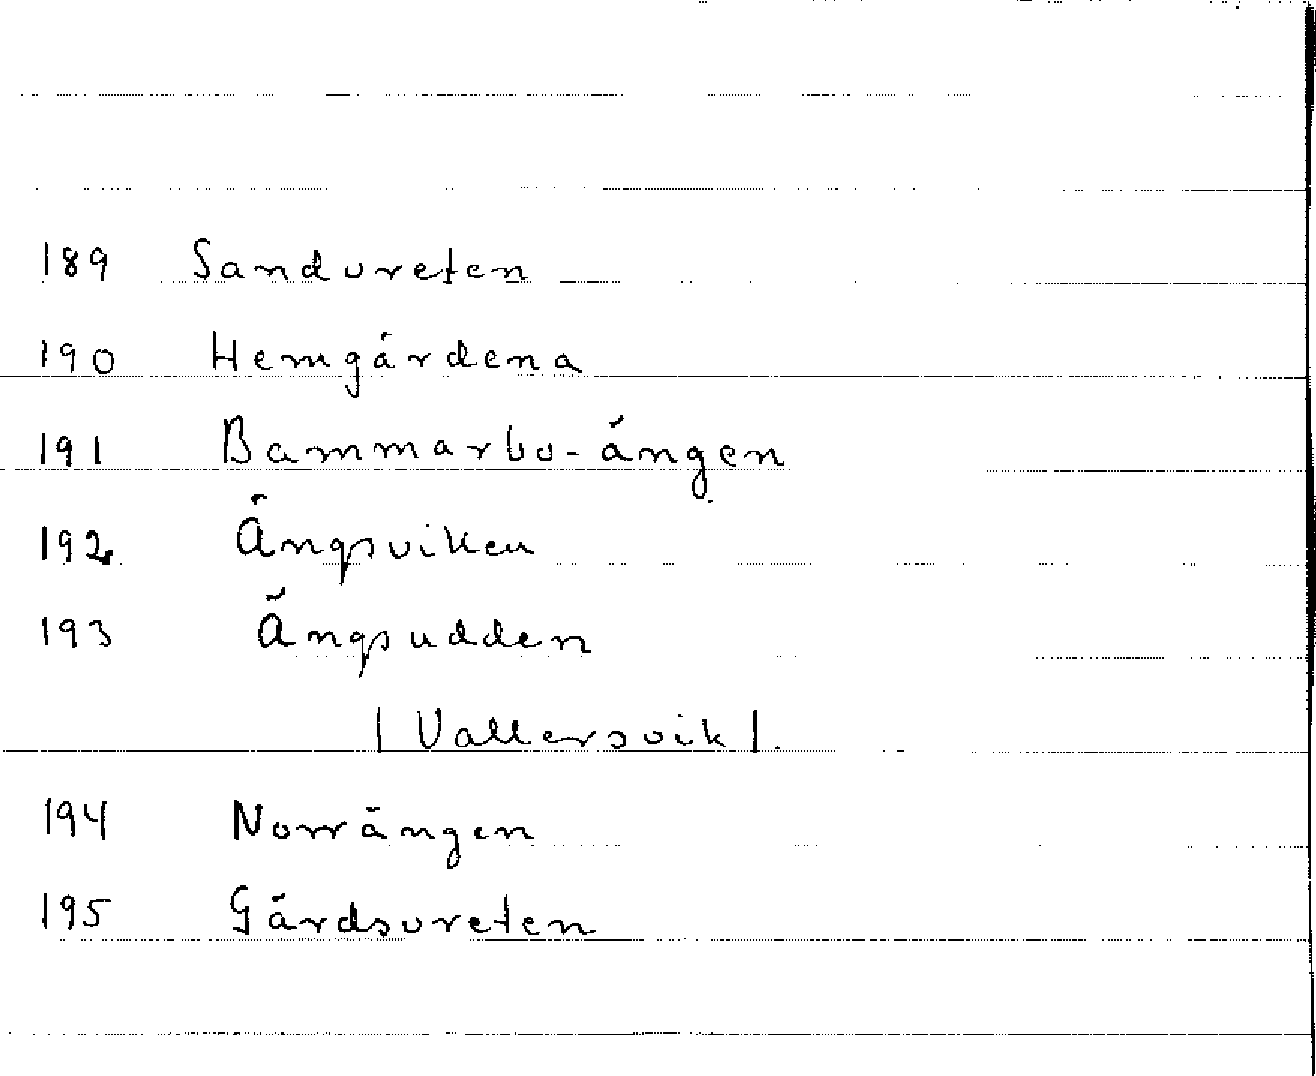 189 Sandvreten
190 Hemgärdena
191 Bammarbo-ängen
192 Ängsviken
193 Ängsudden
| Vallersvik |.
194 Norrängen
195 Gärdsvreten